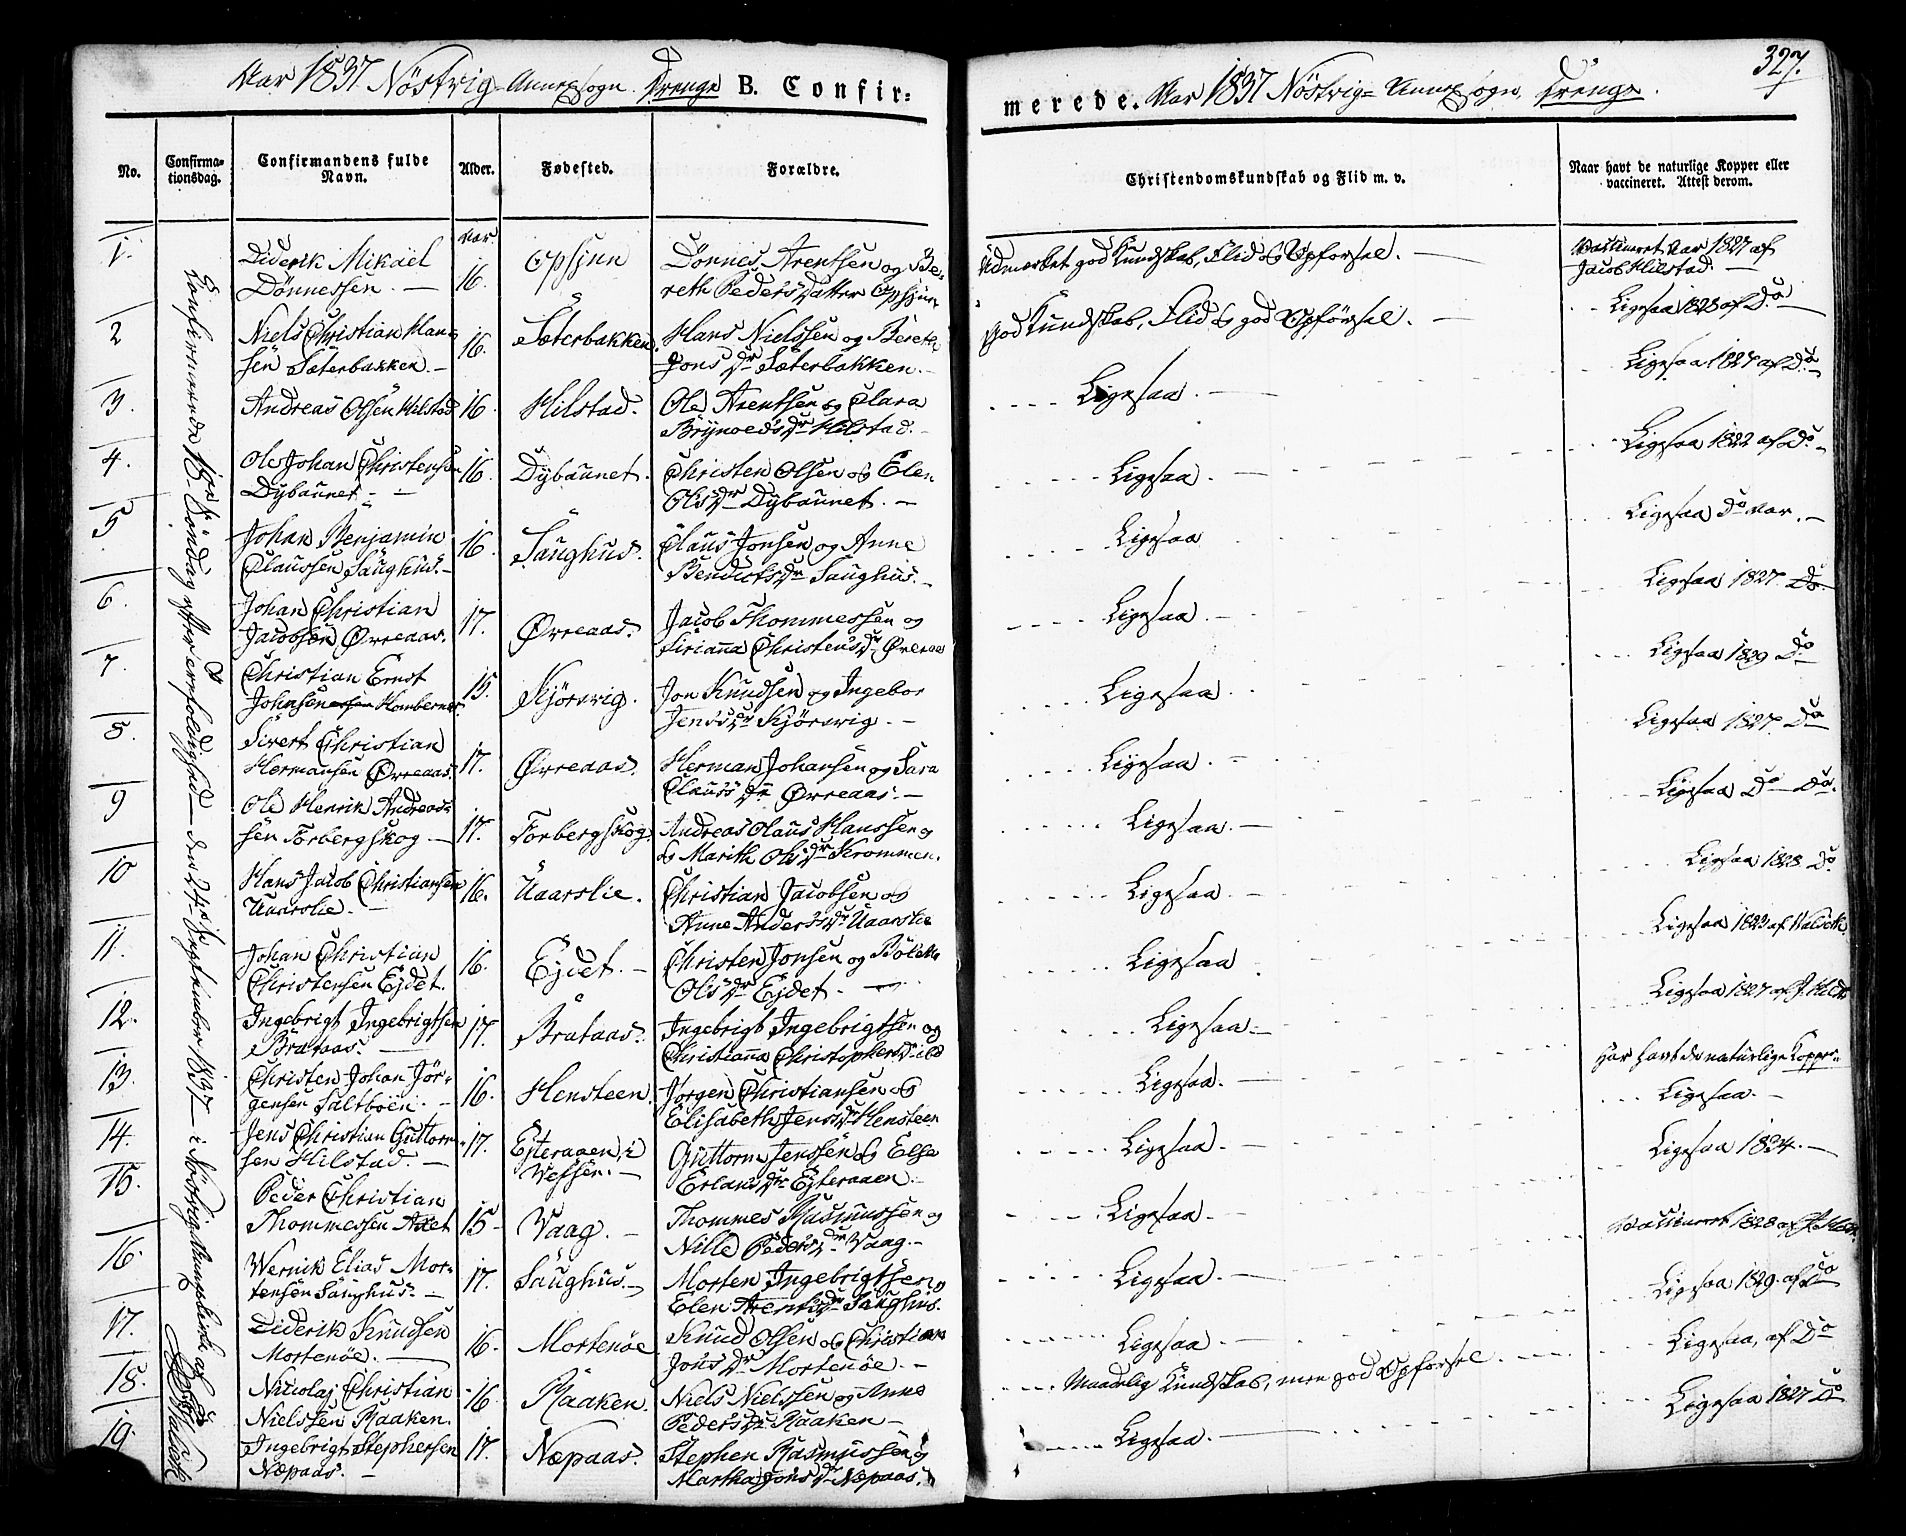 Aar 1837 Nöstvig Annexsogn. Drenge B. Confir=
merede. Aar 1837 Nöstvig= Annexsogn. Drenge.
327.
No.
Confirma-
tionsdag.
Confirmandens fulde
Navn.
Alder.
Fødested.
Forældre.
Christendomskundskab og Flid m. v.
Naar havt de naturlige Kopper eller
vaccineret. Attest derom.
Confirmerede 18de Söndag efter Trefoldighed den 24de September 1837 i Nöstvig Annexkirke af
1. Diderik Mikael
Dönnessen. —
Aar. 16.
Opsjun
Dönnes Arentsen og Be-
reth Peders Datter Opsjun
Udmærket god Kundskab, Flid & Opførsel. —
Vaccineret Aar 1827 af
Jacob Hilstad. —
2 Niels Christian Han=
sen Sæterbakken. —
16.
Sæterbakken
Hans Nielssen og Bereth
Jons Dr Sæterbakken. —
god Kundskab, Flid & god Opførsel. —
Ligesaa 1828 af Do
3. Andreas Olsen Hilstad
16.
Hilstad.
Ole Arentsen og Clara
Brynoeds Dr Hilstad. —
Ligesaa. —
Ligesaa 1827 af Do
4. Ole Johan Christensen
Dybaunet. —
16.
Dybaunet.
Christen Olsen og Elen
Ols Dr Dybaunet. —
Ligesaa. —
Ligesaa 1822 af Do
5. Johan Benjamin
Claussen Sanghus. —
16.
Sanghus.
Claus Jonsen og Anne
Bendicts Dr Sanghus. —
Ligesaa
Ligesaa Do Aar. —
6. Johan Christian
Jacobsen Ørreaas.
17.
Ørreaas.
Jacob Thommessen og
Sirianna Christens Dr Ørreaas
Ligesaa. —
Ligesaa 1827 Do
7. Christian Ernst
Johnsen Hombernes.
15.
Kjörsvig.
Jon Knudsen og Ingebor
Jens Dr Kjörsvig. —
Ligesaa.
Ligesaa 1829 Do
8. Sivert Christian
Hermansen Ørreaas.
17.
Ørreaas.
Herman Johansen og Sara
Claus Dr Ørreaas. —
Ligesaa. —
Ligesaa 1827. Do
9 Ole Henrik Andreas=
sen Forbergskog —
17.
Forbergskog
Andreas Olaus Hanssen
& Marith Ols Dr Krommen.
Ligesaa. —
Ligesaa Do Do.
10 Hans Jacob Christiansen
Uaarslie. —
16.
Uaarslie.
Christian Jacobsen og
Anne Anders Dr Uaarslie
Ligesaa. —
Ligesaa 1828 Do
11. Johan Christian
Christensen Ejdet.
16.
Ejdet. —
Christen Jonsen og Boleth
Ols Dr Ejdet. —
Ligesaa
Ligesaa 1823 af
12. Ingebrigt Ingebrigtsen
Brataas. —
17.
Brataas.
Ingebrigt Ingebrigtsen og
Christianna Christophers Dr
Ligesaa. —
Ligesaa 1827 af
13. Christen Johan Jör-
gensen Saltböen. —
16.
Hensteen.
Jörgen Christiansen og
Elisabeth Jens Dr Hensteen
Ligesaa. —
Har havt de naturlige Kopper
14. Jens Christian Guttorm
sen Hilstad. —
17.
Ejteraaen, i
Vefsen. —
Guttorm Jenssen & Else
Erlans Dr Ejteraaen. —
Ligesaa. —
Ligesaa. —
15. Peder Christian
Thommessen
15
Vaag. —
Thommes Rasmussen og
Nille Peders Dr Vaag. —
Ligesaa. —
Ligesaa 1834. —
16. Wernik Elias Mor-
tensen Sanghus. —
17.
Sanghus. —
Morten Ingebrigtsen
Elen Arents Dr Sanghus.
Ligesaa. —
Vaccineret 1828 af
17. Diderik Knudsen
Mortenöe. —
16.
Mortenöe
Knud Olsen og Christian
Jons Dr Mortenöe. —
Ligesaa. —
Ligesaa 1829. af Do
18. Nicolaj Christian
Nielssen Raaken.
16
Raaken.
Niels Nielssen og Anne
Peders Dr Raaken —
Maadelig Kundskab, men god Opførsel.
Ligesaa, af Do
19. Ingebrigt Stephersen
Næpaas. —
17.
Næpaas.
Stephen Rasmussen
Martha Jons Dr Næpaas.
Ligesaa. —
Ligesaa 1827 Do